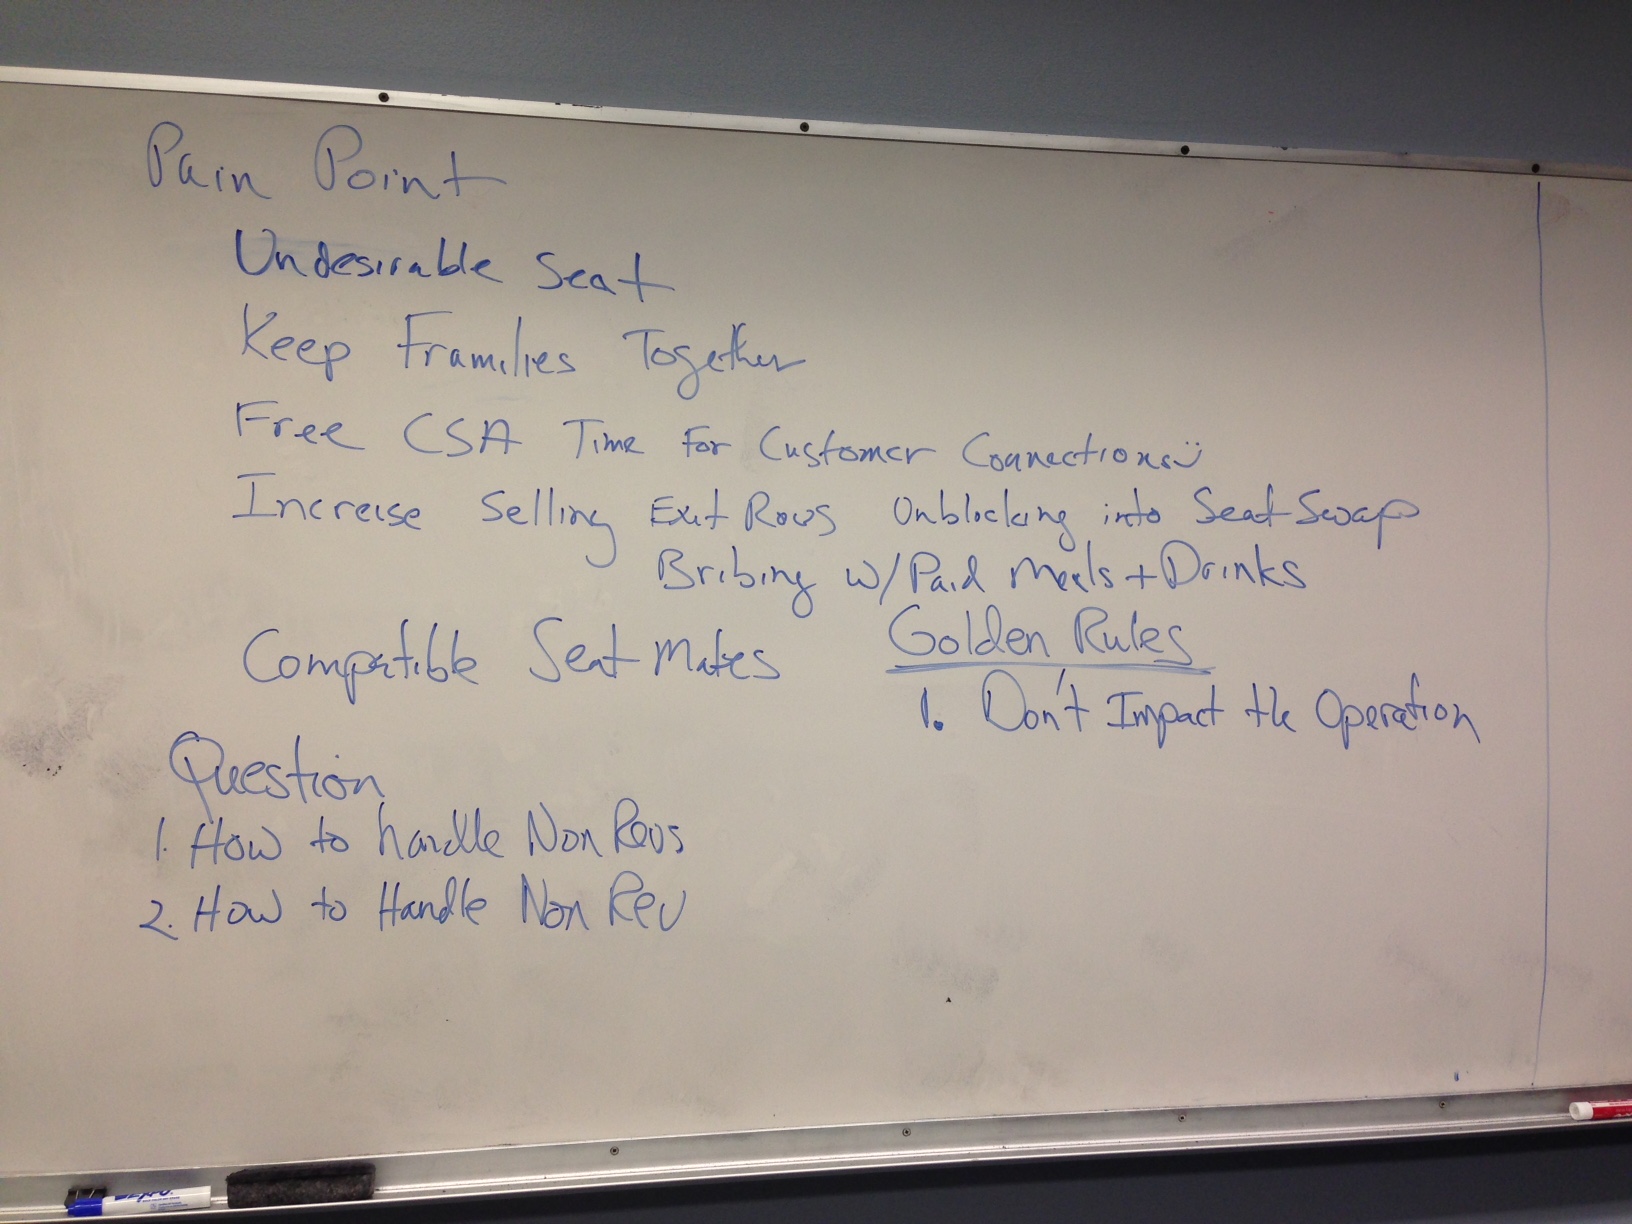 Pain Point
Undesirable Seat
Keep Framilies Together
Free CSA Time For Customer Connections :)
Increase Selling Exit Rows Unblocking into Seat Swap
Bribing w/ Paid Meals + Drinks
Compatible Seat Mates
Golden Rules
1. Don't Impact the Operation
Question
1. How to handle Non Revs
2. How to Handle Non Rev
EXPO